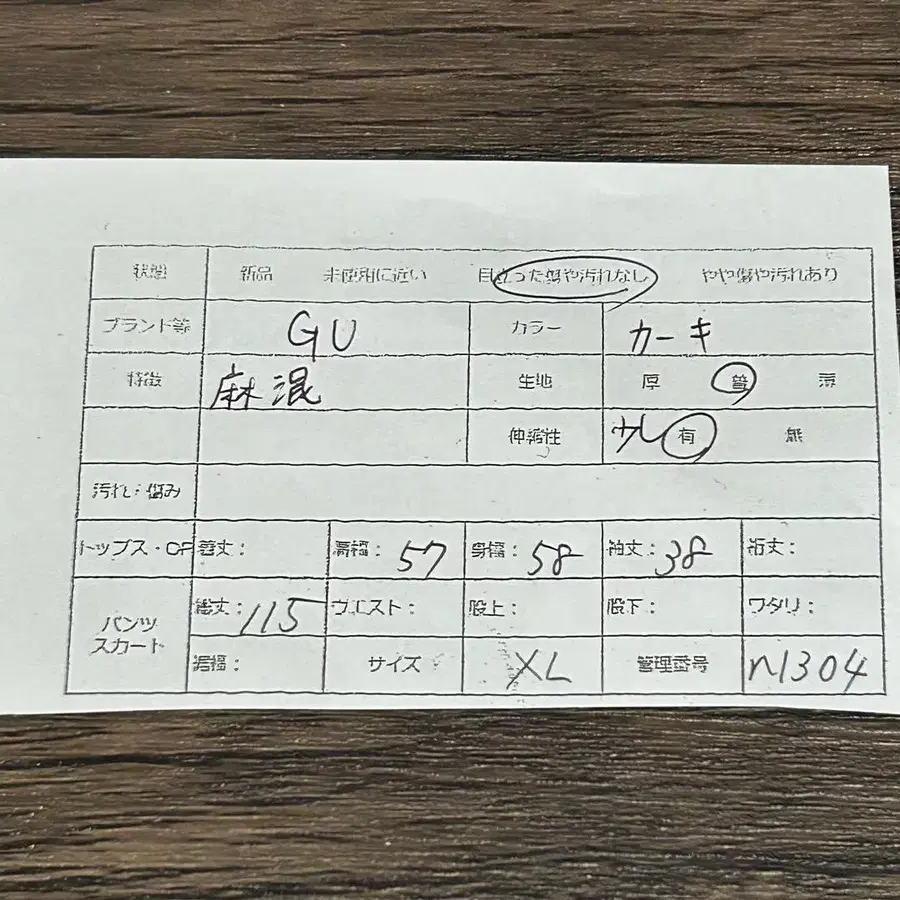 状態 新品 未使用に近い 目立った傷や汚れなし やや傷や汚れあり
ブランド等 GU カラー カーキ
特徴 麻混 生地 厚 普 薄
伸縮性 少し 有 無
汚れ・傷み
トップス・OP 着丈: 肩幅: 57 身幅: 58 袖丈: 38 裄丈:
パンツ スカート 総丈: 115 ウエスト: 股上: 股下: ワタリ:
裾幅: サイズ XL 管理番号 n1304